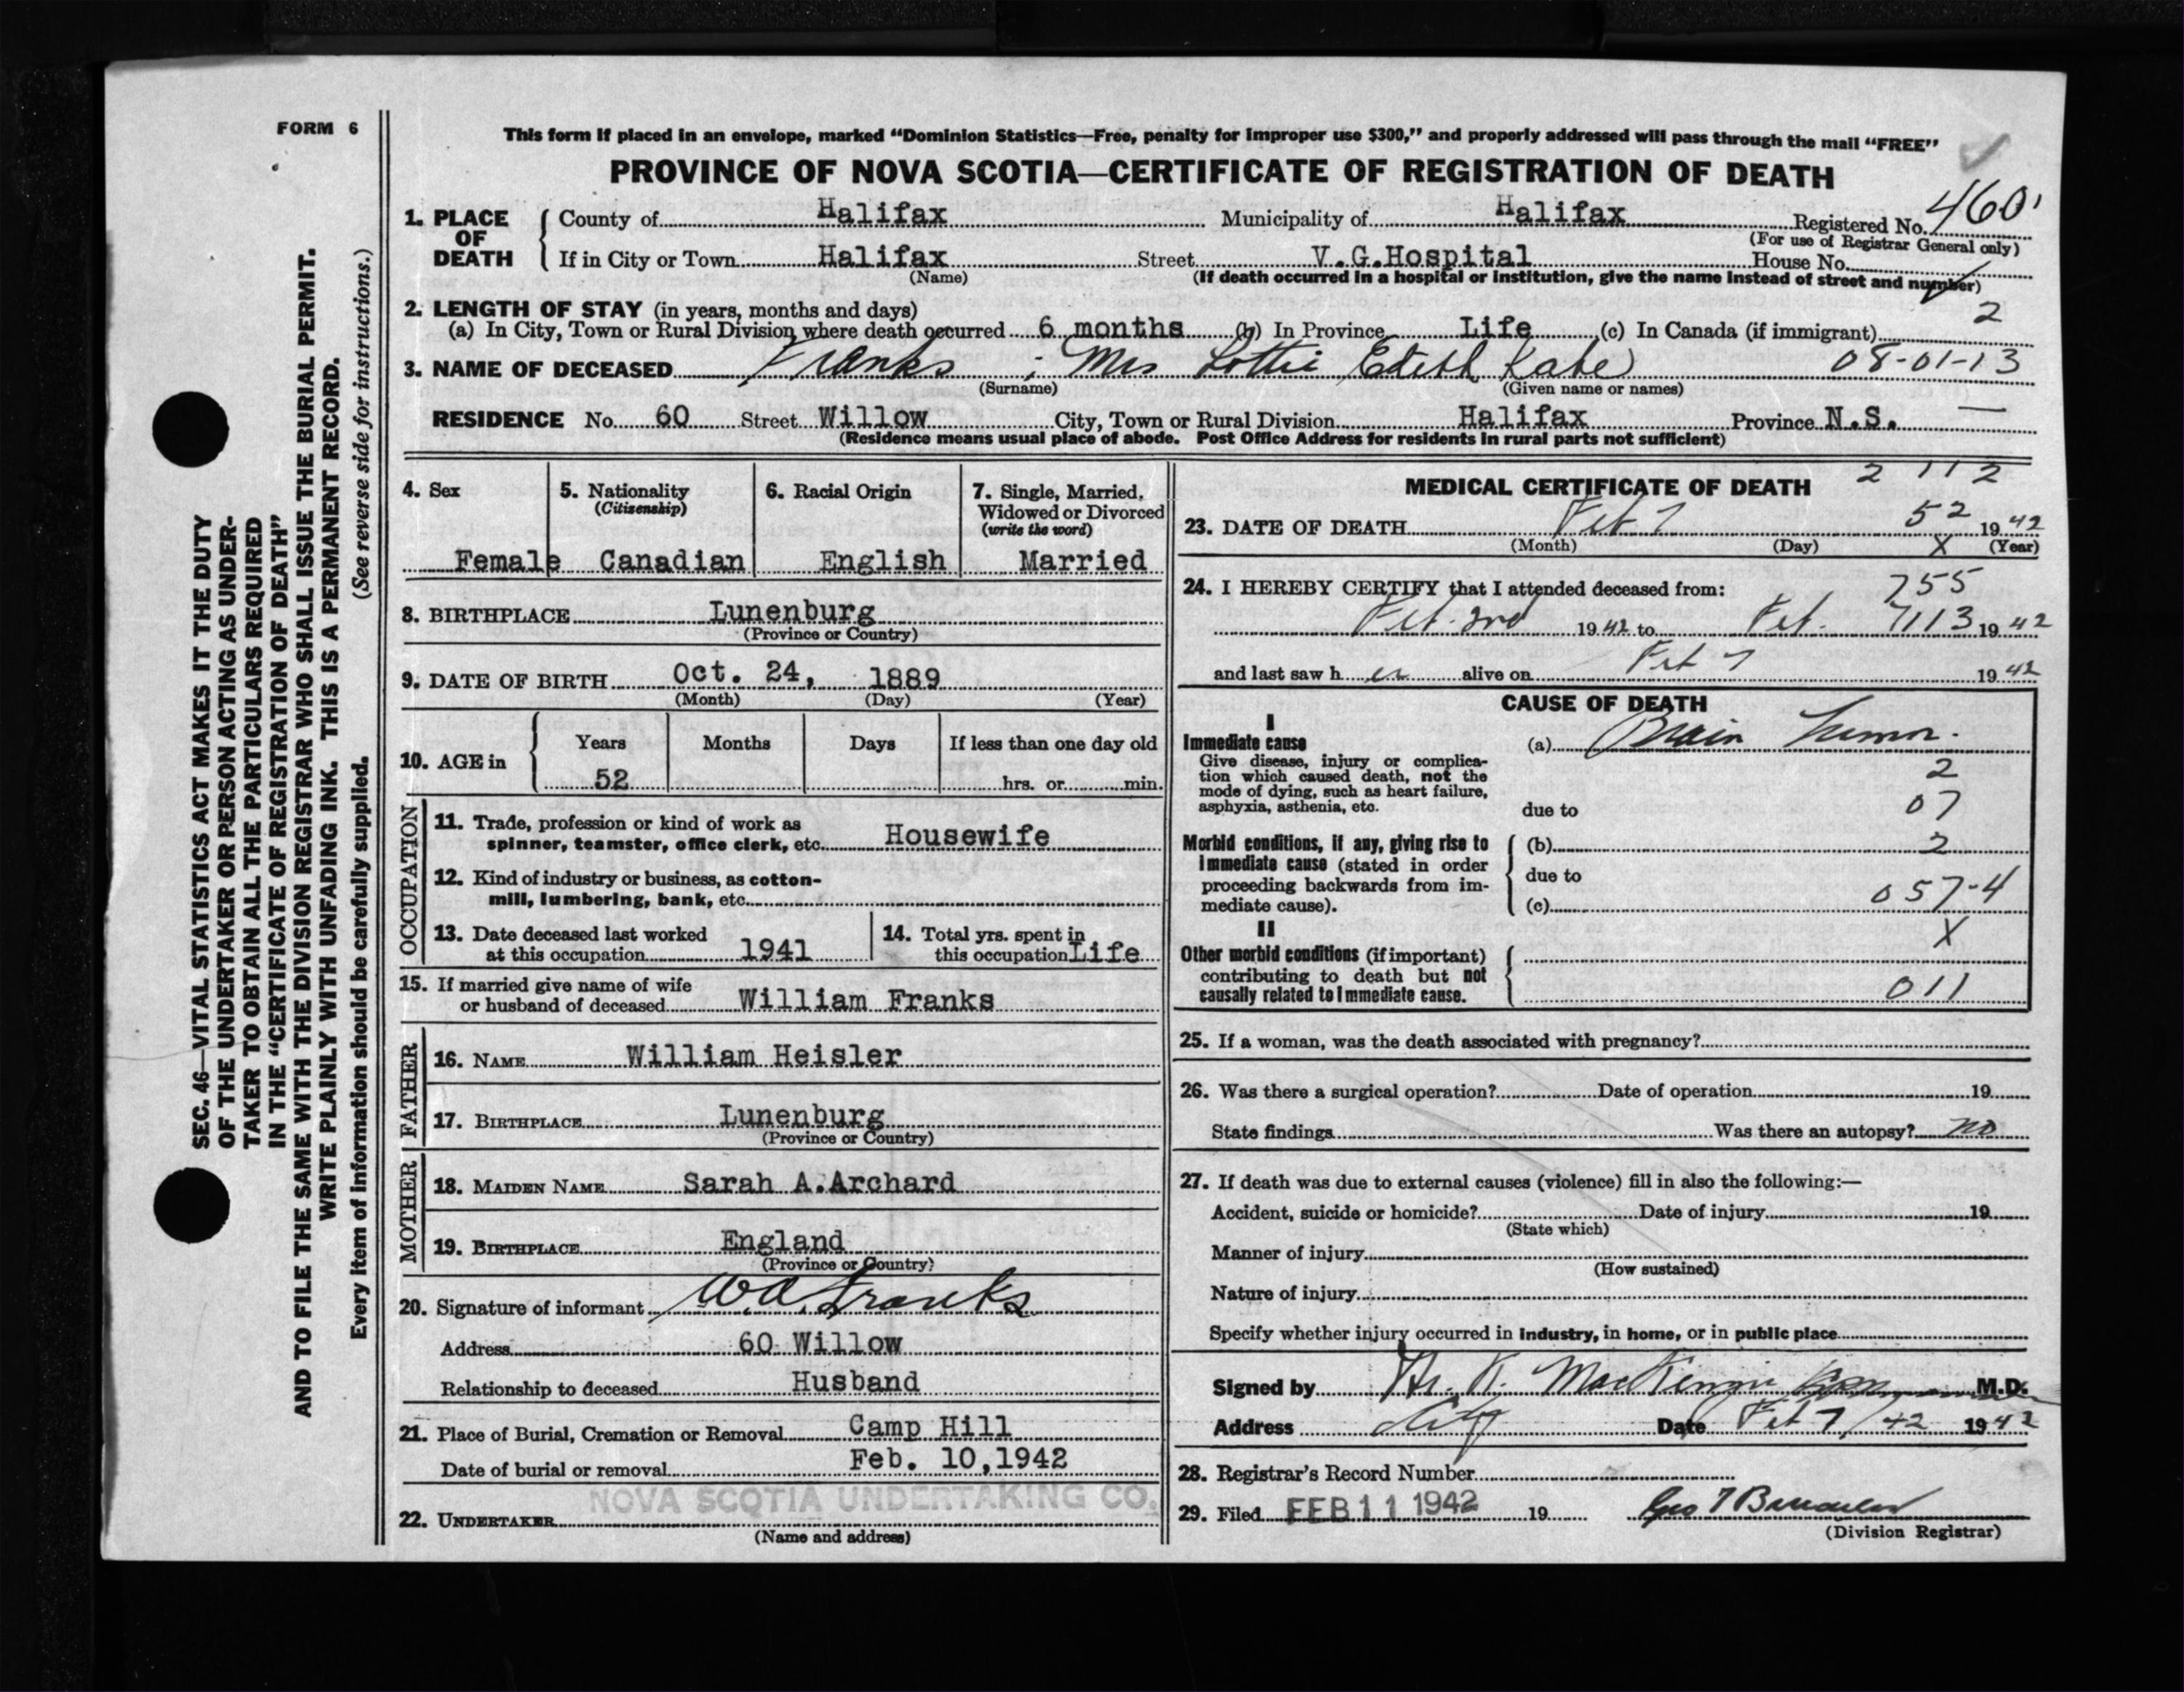 FORM 6
This form if placed in an envelope, marked “Dominion Statistics—Free, penalty for improper use $300,” and properly addressed will pass through the mail “FREE”
PROVINCE OF NOVA SCOTIA—CERTIFICATE OF REGISTRATION OF DEATH
1. PLACE OF DEATH
County of Halifax Municipality of Halifax Registered No. 460
(For use of Registrar General only)
If in City or Town Halifax Street V.G.Hospital House No.
(Name) (If death occurred in a hospital or institution, give the name instead of street and number)
2. LENGTH OF STAY (in years, months and days) 2
(a) In City, Town or Rural Division where death occurred 6 months (b) In Province Life (c) In Canada (if immigrant)
3. NAME OF DECEASED Franks ; Mrs Lottie Edith Kate 08-01-13
(Surname) (Given name or names)
RESIDENCE No. 60 Street Willow City, Town or Rural Division Halifax Province N.S. —
(Residence means usual place of abode. Post Office Address for residents in rural parts not sufficient)
4. Sex
Female
5. Nationality
(Citizenship)
Canadian
6. Racial Origin
English
7. Single, Married,
Widowed or Divorced
(write the word)
Married
8. BIRTHPLACE Lunenburg
(Province or Country)
9. DATE OF BIRTH Oct. 24, 1889
(Month) (Day) (Year)
10. AGE in
Years Months Days If less than one day old
52 hrs. or min.
OCCUPATION
11. Trade, profession or kind of work as
spinner, teamster, office clerk, etc. Housewife
12. Kind of industry or business, as cotton-
mill, lumbering, bank, etc.
13. Date deceased last worked
at this occupation 1941
14. Total yrs. spent in
this occupation Life
15. If married give name of wife
or husband of deceased William Franks
FATHER
16. NAME William Heisler
17. BIRTHPLACE Lunenburg
(Province or Country)
MOTHER
18. MAIDEN NAME Sarah A.Archard
19. BIRTHPLACE England
(Province or Country)
20. Signature of informant W.A. Franks
Address 60 Willow
Relationship to deceased Husband
21. Place of Burial, Cremation or Removal Camp Hill
Date of burial or removal Feb. 10,1942
NOVA SCOTIA UNDERTAKING CO.
22. UNDERTAKER
(Name and address)
MEDICAL CERTIFICATE OF DEATH 2 112
23. DATE OF DEATH Feb 7 52 1942
(Month) (Day) X (Year)
24. I HEREBY CERTIFY that I attended deceased from: 755
Feb. 2nd 1942 to Feb. 7113 1942
and last saw her alive on Feb 7 1942
CAUSE OF DEATH
I
Immediate cause (a) Brain Tumor.
Give disease, injury or complica-
tion which caused death, not the 2
mode of dying, such as heart failure,
asphyxia, asthenia, etc. due to 07
Morbid conditions, if any, giving rise to (b) 2
immediate cause (stated in order
proceeding backwards from im- due to
mediate cause). (c) 057-4
II X
Other morbid conditions (if important)
contributing to death but not
causally related to immediate cause. 011
25. If a woman, was the death associated with pregnancy?
26. Was there a surgical operation? Date of operation 19
State findings Was there an autopsy? no
27. If death was due to external causes (violence) fill in also the following:—
Accident, suicide or homicide? Date of injury 19
(State which)
Manner of injury
(How sustained)
Nature of injury
Specify whether injury occurred in industry, in home, or in public place
Signed by K. MacKenzie M.D.
Address City Date Feb 7/42 1942
28. Registrar's Record Number
29. Filed FEB 11 1942 19
(Division Registrar)
SEC. 46—VITAL STATISTICS ACT MAKES IT THE DUTY
OF THE UNDERTAKER OR PERSON ACTING AS UNDER-
TAKER TO OBTAIN ALL THE PARTICULARS REQUIRED
IN THE “CERTIFICATE OF REGISTRATION OF DEATH”
AND TO FILE THE SAME WITH THE DIVISION REGISTRAR WHO SHALL ISSUE THE BURIAL PERMIT.
WRITE PLAINLY WITH UNFADING INK. THIS IS A PERMANENT RECORD.
Every item of information should be carefully supplied. (See reverse side for instructions.)